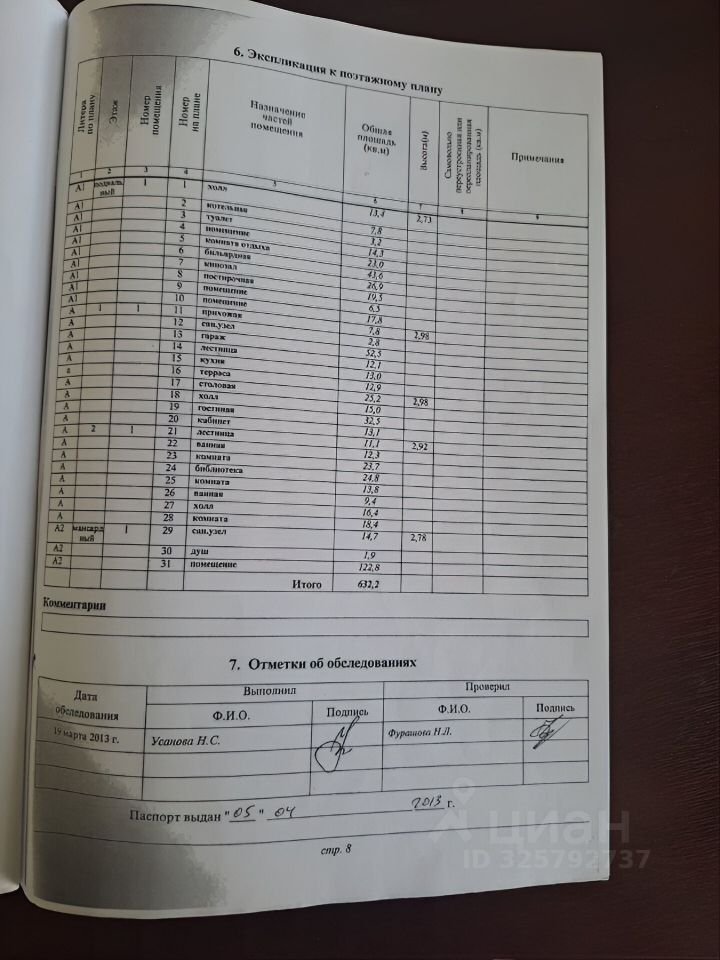 6. Экспликация к поэтажному плану
Литера по плану | Этаж | Номер помещения | Номер на плане | Назначение частей помещения | Общая площадь (кв.м) | Высота(м) | Самовольно переустроенная или перепланированная площадь (кв.м) | Примечания
1 | 2 | 3 | 4 | 5 | 6 | 7 | 8 | 9
А1 | подвальный | 1 | 1 | холл | 13,4 | 2,73
А1 | 2 | котельная | 7,8
А1 | 3 | туалет | 3,2
А1 | 4 | помещение | 14,3
А1 | 5 | комната отдыха | 23,0
А1 | 6 | бильярдная | 43,6
А1 | 7 | кинозал | 26,9
А1 | 8 | постирочная | 19,5
А1 | 9 | помещение | 6,5
А1 | 10 | помещение | 17,8
А | 1 | 1 | 11 | прихожая | 7,8 | 2,98
А | 12 | сан.узел | 2,8
А | 13 | гараж | 52,5
А | 14 | лестница | 12,1
А | 15 | кухня | 13,0
а | 16 | терраса | 12,9
А | 17 | столовая | 25,2 | 2,98
А | 18 | холл | 15,0
А | 19 | гостиная | 32,5
А | 20 | кабинет | 13,1
А | 2 | 1 | 21 | лестница | 11,1 | 2,92
А | 22 | ванная | 12,3
А | 23 | комната | 23,7
А | 24 | библиотека | 24,8
А | 25 | комната | 13,8
А | 26 | ванная | 9,4
А | 27 | холл | 16,4
А | 28 | комната | 18,4
А2 | мансардный | 1 | 29 | сан.узел | 14,7 | 2,78
А2 | 30 | душ | 1,9
А2 | 31 | помещение | 122,8
Итого | 632,2
Комментарии
7. Отметки об обследованиях
Дата обследования | Выполнил | Проверил
Ф.И.О. | Подпись | Ф.И.О. | Подпись
19 марта 2013 г. | Усанова Н.С. | Фурашова Н.Л.
Паспорт выдан "05" 04 2013 г.
стр. 8
циан
ID 325792737